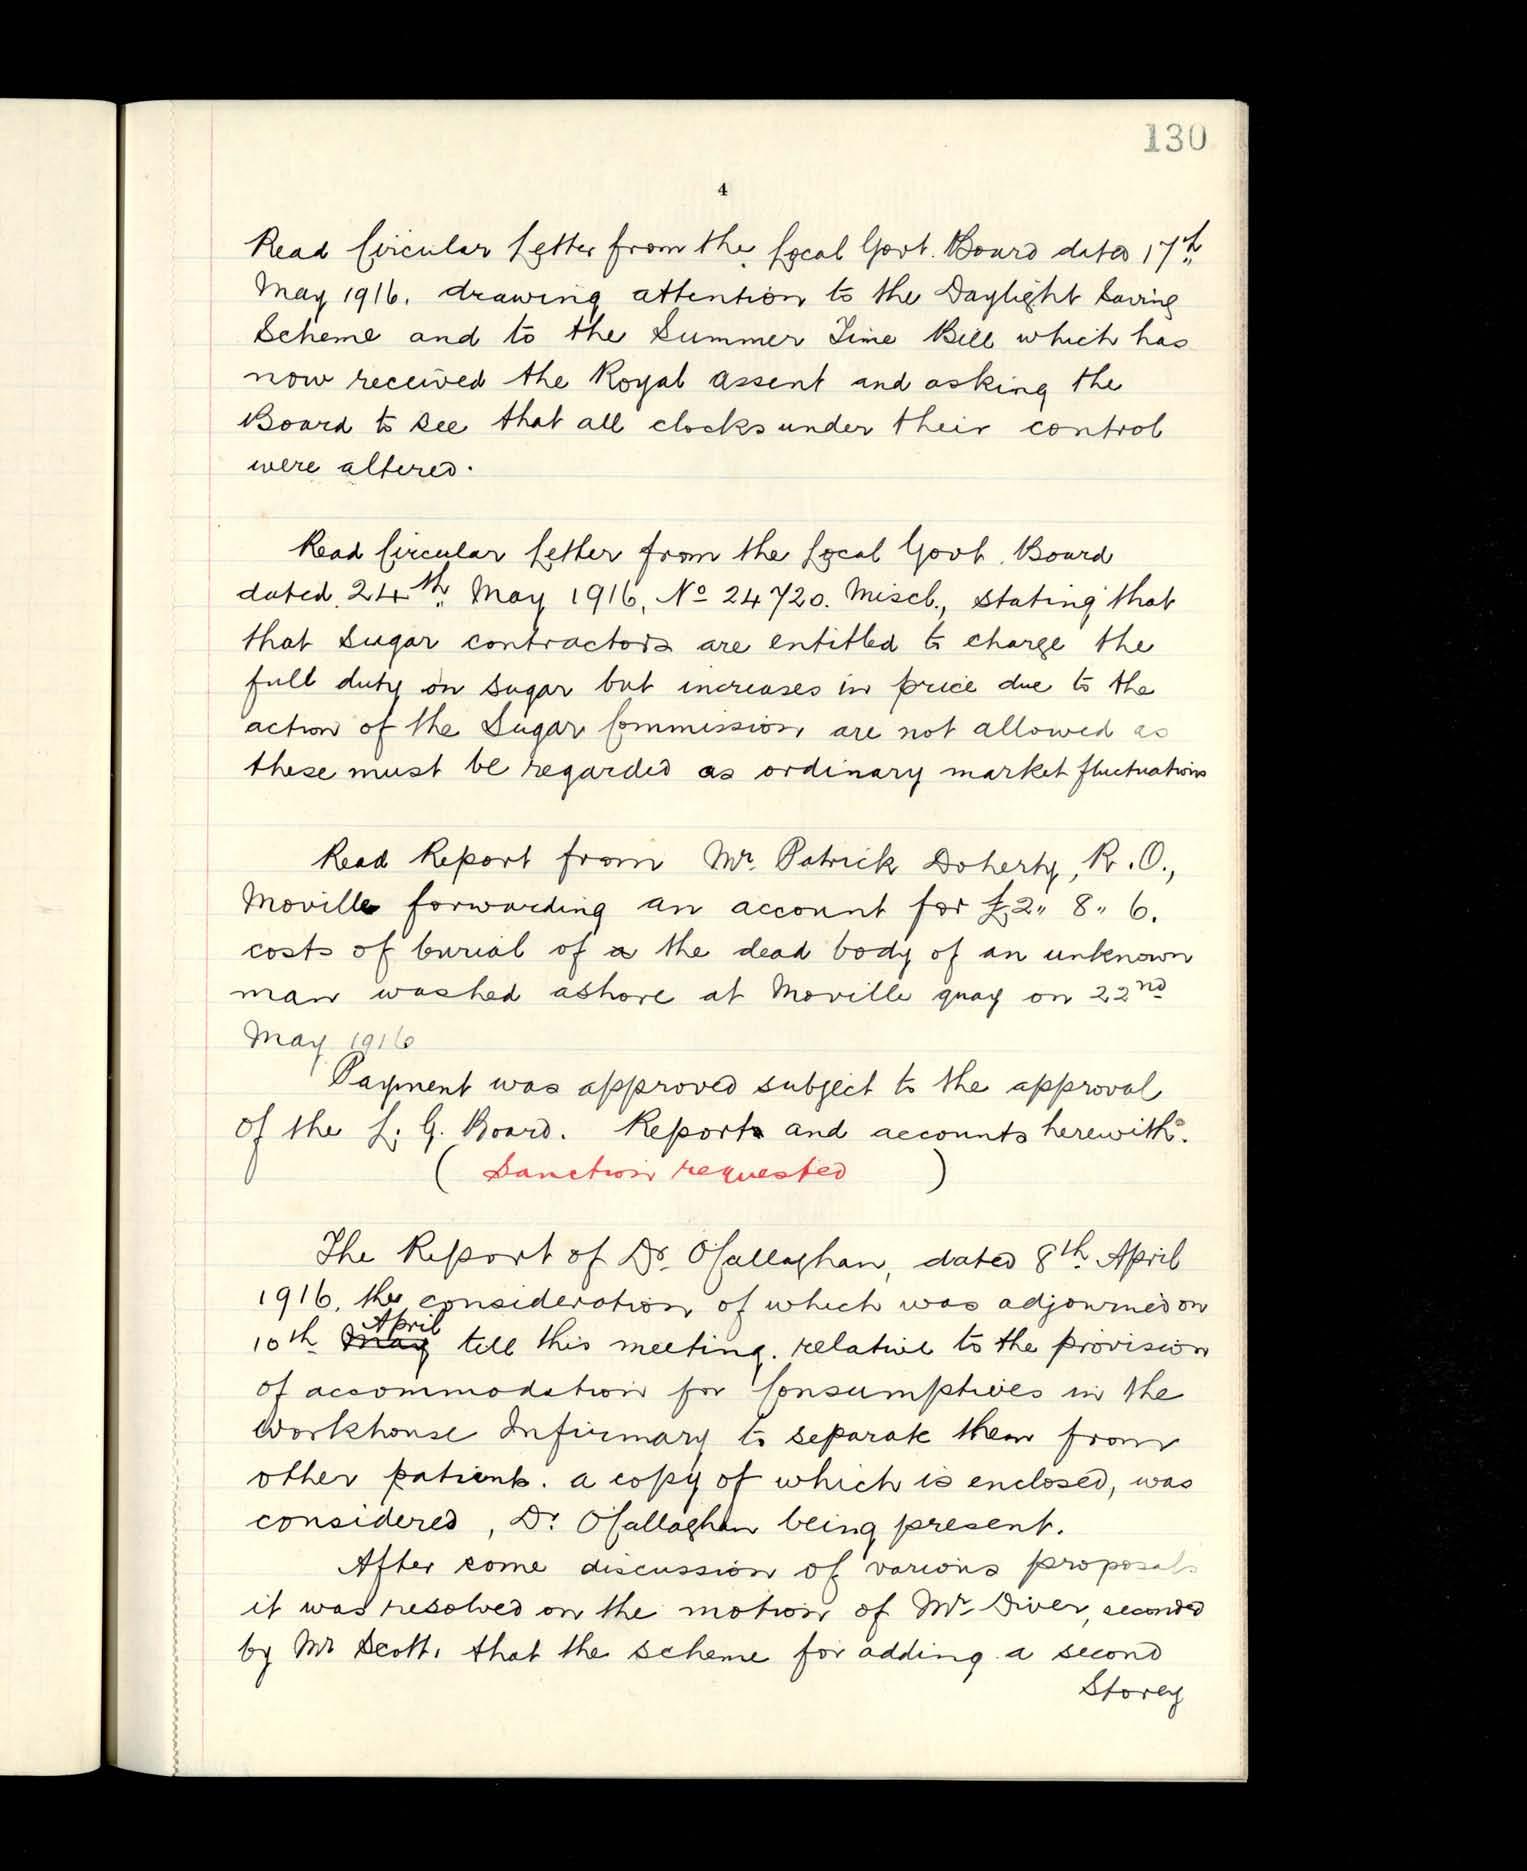 130
4
Read Circular Letter from the Local Govt. Board dated 17th
May 1916. drawing attention to the Daylight Saving
Scheme and to the Summer Time Bill which has
now received the Royal Assent and asking the
Board to see that all clocks under their control
were altered.
Read Circular Letter from the Local Govt. Board
dated 24th May 1916, No 24720. Miscl., stating that
that Sugar contractors are entitled to charge the
full duty on Sugar but increases in price due to the
action of the Sugar Commission are not allowed as
these must be regarded as ordinary market fluctuations
Read Report from Mr. Patrick Doherty, R.O.,
Moville forwarding an account for £2" 8" 6.
costs of burial of a the dead body of an unknown
man washed ashore at Moville quay on 22nd
May 1916
Payment was approved subject to the approval
of the L. G. Board. Report and accounts herewith.
( Sanction requested )
The Report of Dr. O'Callaghan, dated 8th April
1916, the consideration of which was adjourned on
10th May April till this meeting. relative to the provision
of accommodation for Consumptives in the
Workhouse Infirmary to separate them from
other patients. a copy of which is enclosed, was
considered, Dr. O'Callaghan being present.
After some discussion of various proposals
it was resolved on the motion of Mr. Diver, seconded
by Mr Scott, that the scheme for adding a second
Storey